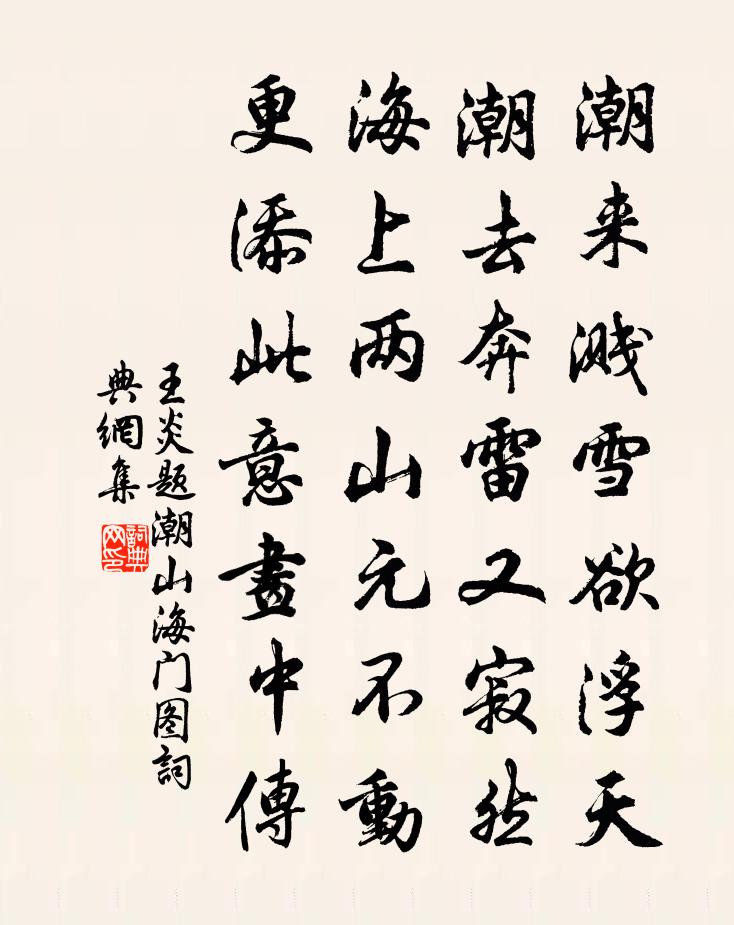 潮来溅雪欲浮天
潮去奔雷又寂然
海上两山元不動
更添此意畫中傳
王炎题潮山海门图詞
典網集
詞典网印